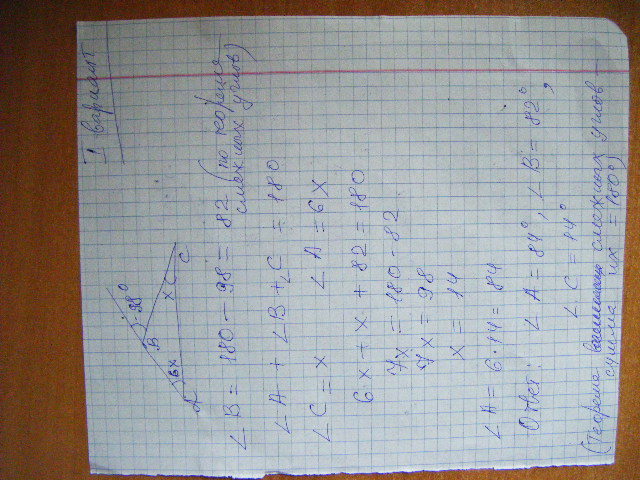 I вариант
98°
B
6x
x
A
C
∠B = 180 - 98 = 82 (по теореме
смежных углов)
∠A + ∠B + ∠C = 180
∠C = x ∠A = 6x
6x + x + 82 = 180
7x = 180 - 82
7x = 98
x = 14
∠A = 6·14 = 84
Ответ: ∠A = 84°, ∠B = 82°,
∠C = 14°
(Теорема смежных углов –
сумма их = 180°)